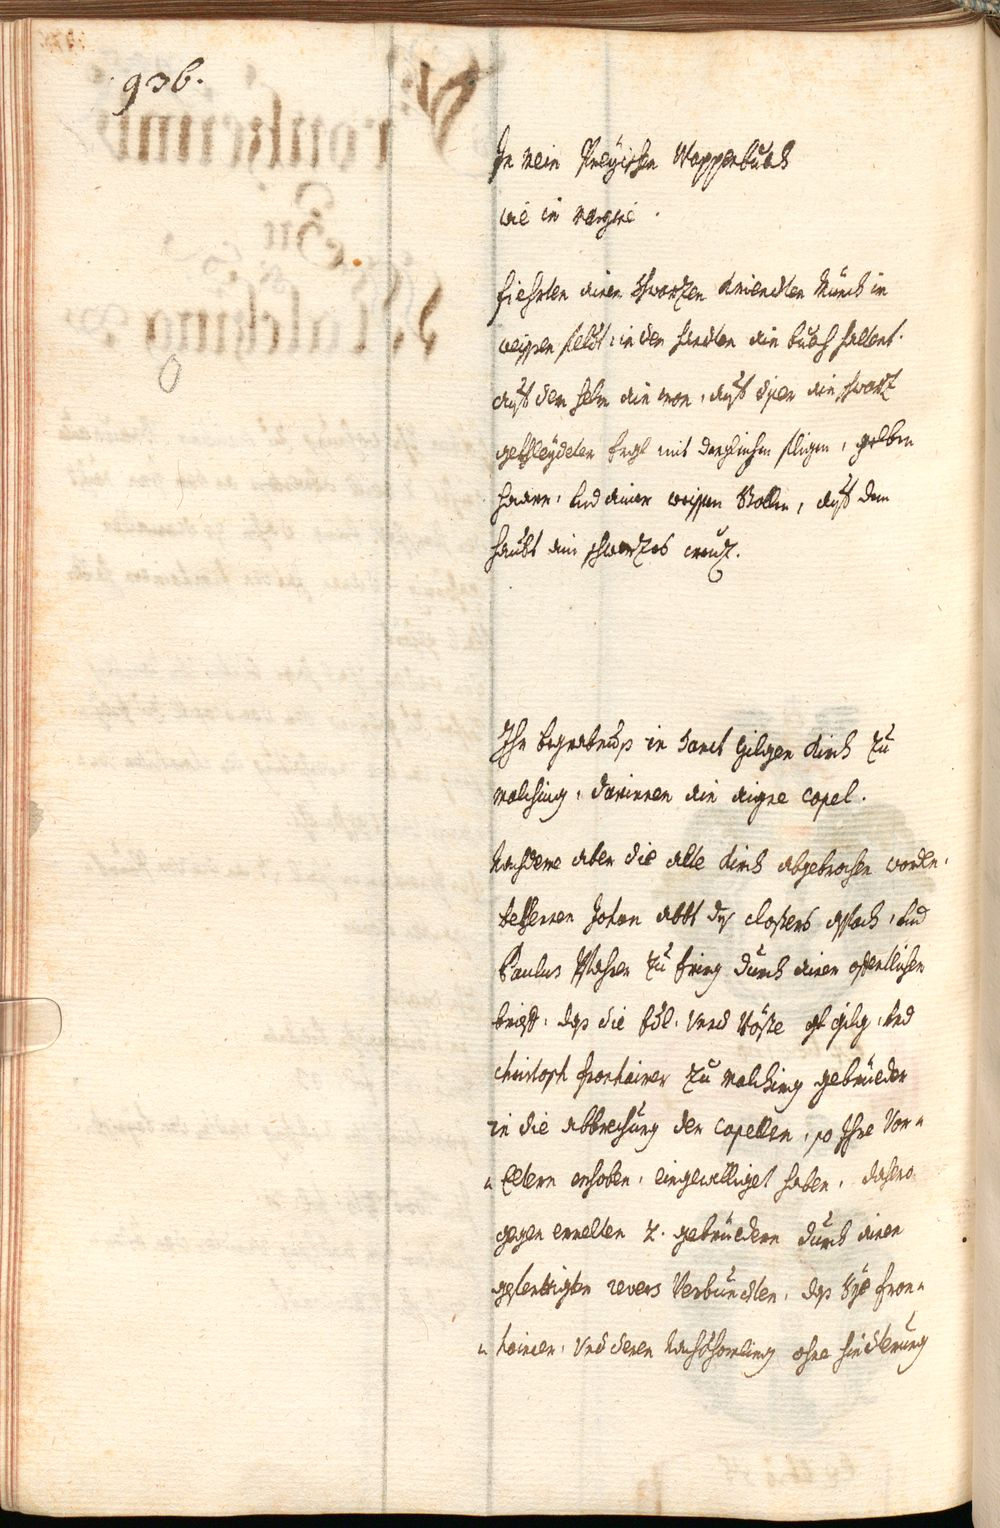 936.
In mein Preÿischen Wappenbuech
wie in margine.
fiehrten einen schwarzen kniendten Münch in
weissen feldt, in den handten ein buech haltent.
auf dem helm ein cron, auf diser ein schwarz
gekhleÿdeter Engl mit dergleichen fligen, gelben
haaren, und einer weissen Stollen, auf dem
haubt ein schwarzes creuz.
Ihr begrabnuß in Sanct Gilgen Kirch zu
malching, darinnen ein aigne capel.
Nachdeme aber die alte Kirch abgebrochen worden,
bekhennen Johan abbt deß closters aspach, und
Paulus Pfahrer zu Ering durch einen offentlichen
brieff, daß die Edl. Vnnd Vöste gilg, und
christoph fronhaimer zu malching gebrüeder
in die abbrechung der capellen, so Ihre Vor-
Eltern erhoben, eingewilliget haben, dahero
gegen ermelten 2. gebrüedern durch einen
gefertigten revers Verbundten, daß Sÿe fron-
haimer, Vnd deren Nachkhomling ohne hinderung